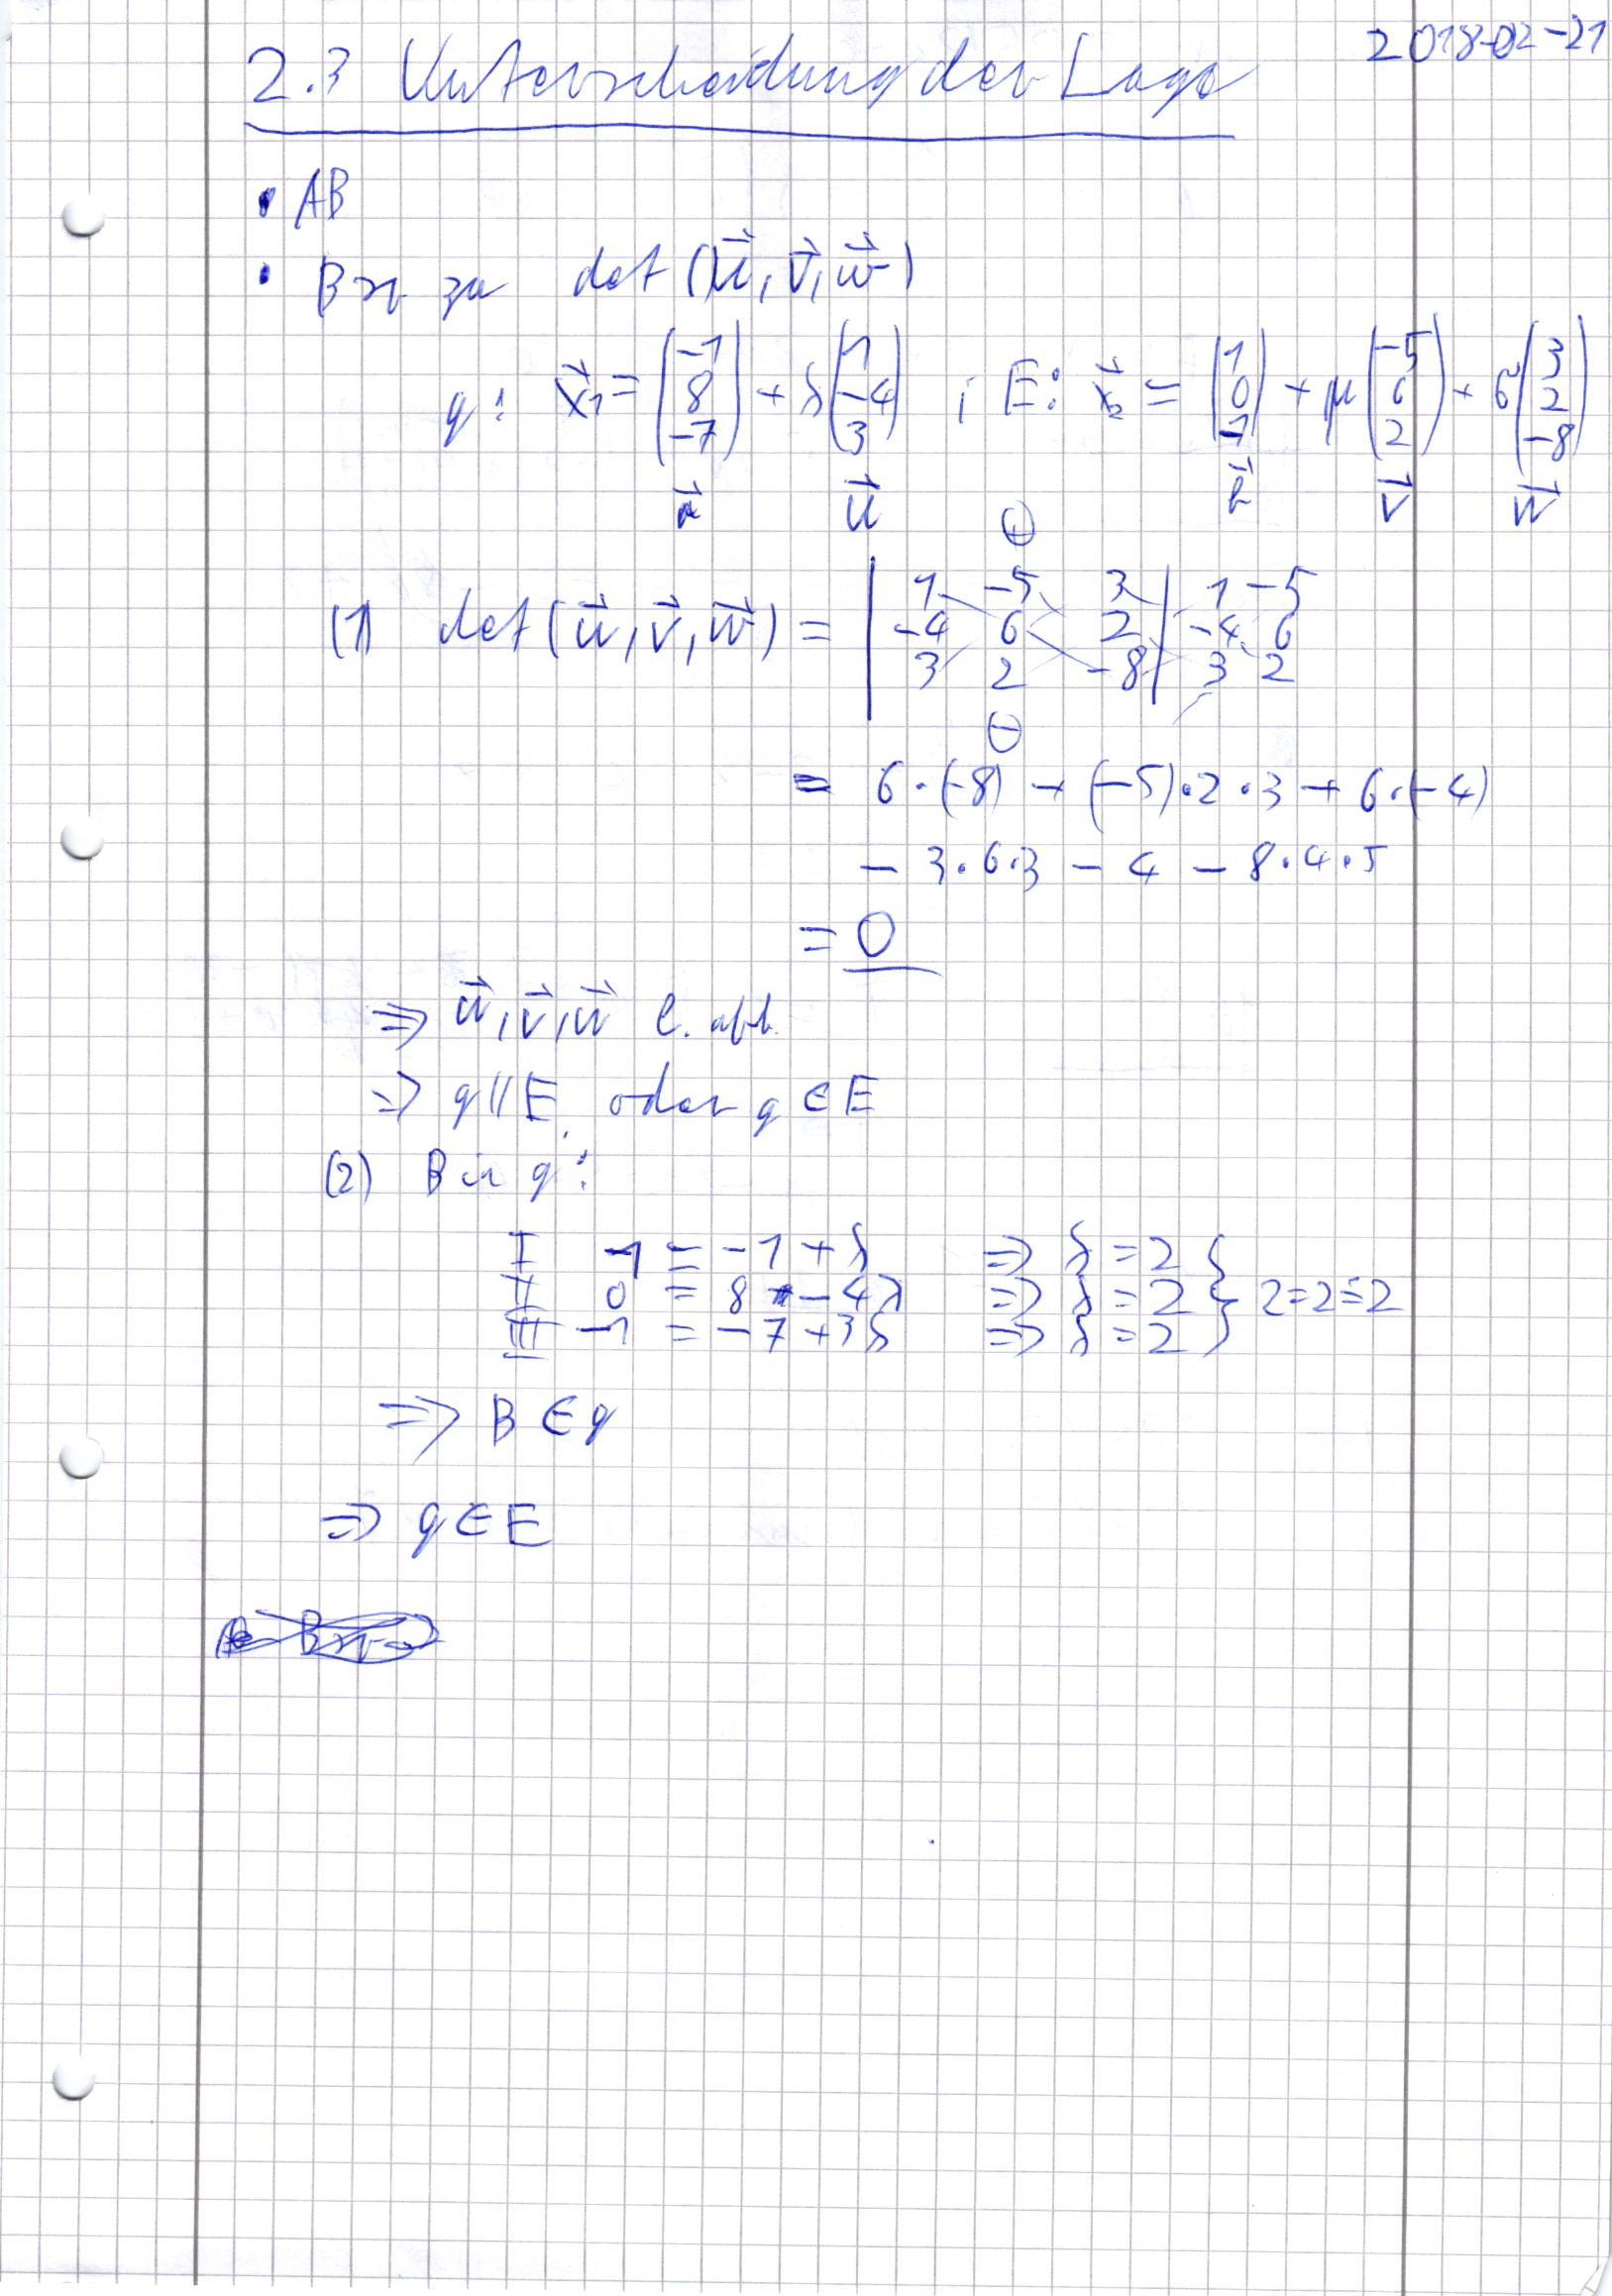 2018-02-21
2.3 Unterscheidung der Lage
• AB
• Bsp zu det (u⃗, v⃗, w⃗)
g: x⃗₁ = (-1 8 -7) + λ (1 -4 3) ; E: x⃗₂ = (1 0 -1) + μ (-5 6 2) + σ (3 2 -8)
a⃗ u⃗ b⃗ v⃗ w⃗
⊕
(1) det (u⃗, v⃗, w⃗) = | 1 -5 3 | 1 -5
-4 6 2 | -4 6
3 2 -8 | 3 2
⊖
= 6·(-8) + (-5)·2·3 + 6·(-4)
- 3·6·3 - 4 - 8·4·5
= 0
⇒ u⃗, v⃗, w⃗ l. abh.
⇒ g ∥ E oder g ∈ E
(2) B in g:
I 1 = -1 + λ ⇒ λ = 2
II 0 = 8 - 4λ ⇒ λ = 2 } 2=2=2
III -1 = -7 + 3λ ⇒ λ = 2
⇒ B ∈ g
⇒ g ∈ E